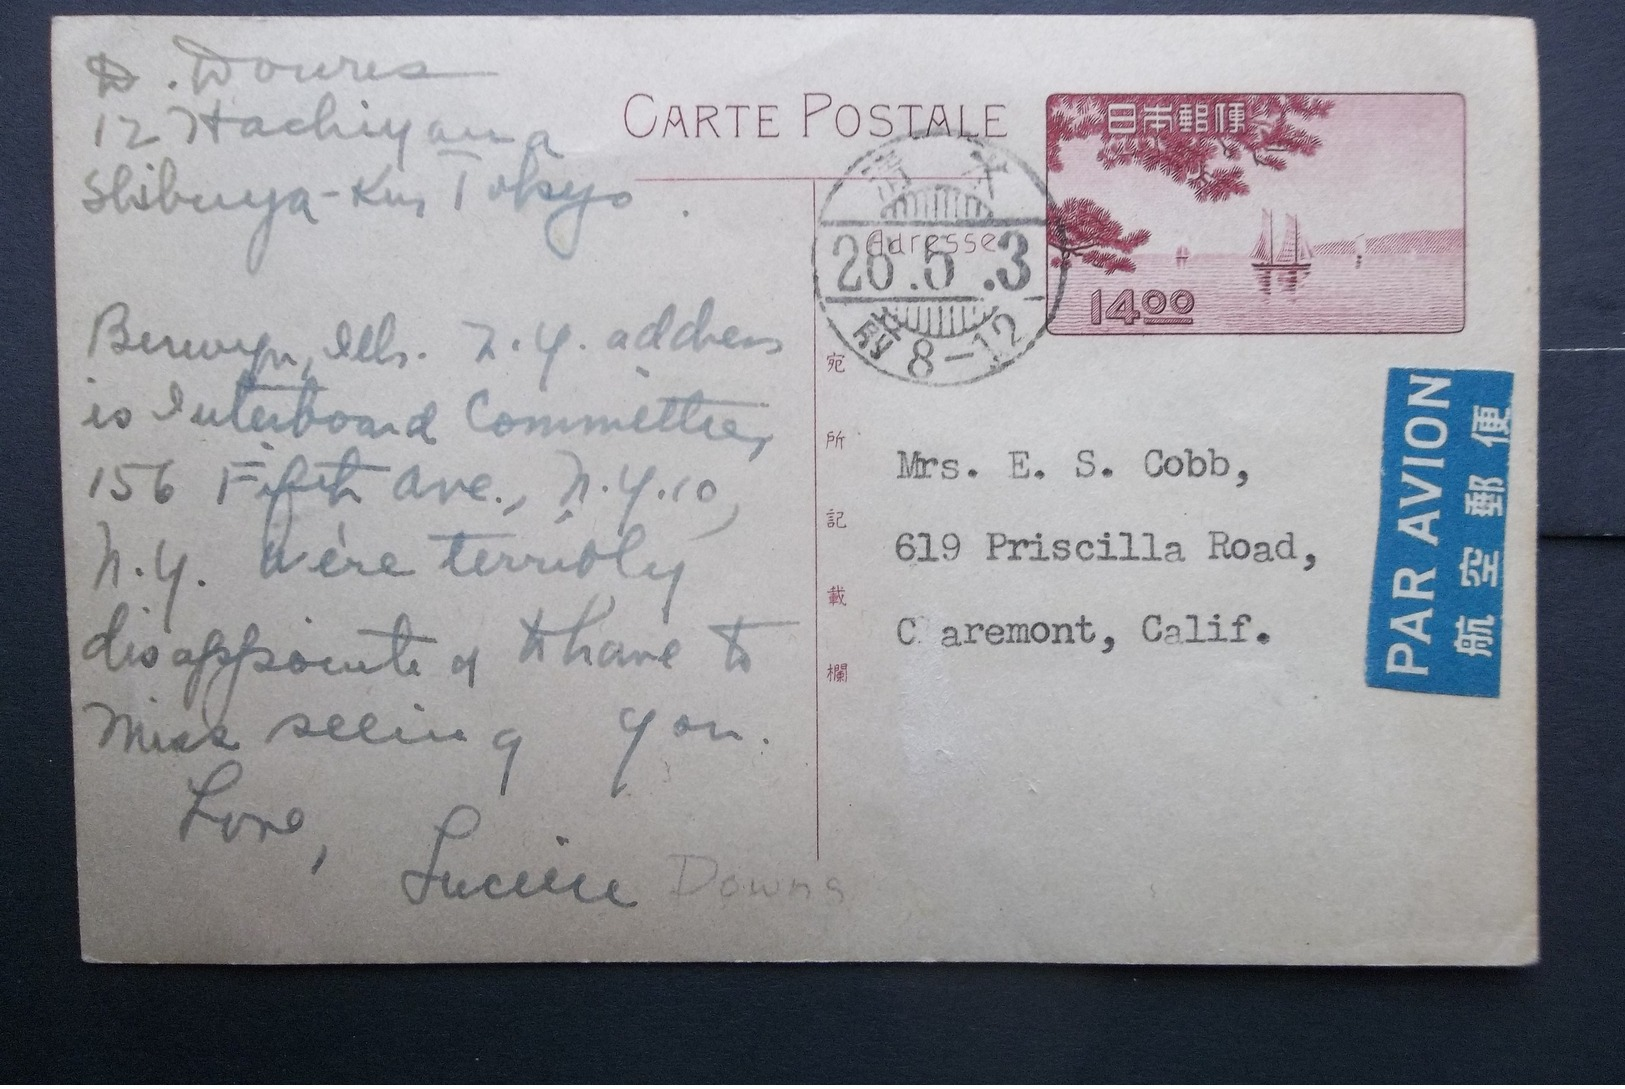 D. Downs
12 Hachiyama
Shibuya-Ku, Tokyo.
Berwyn, Ills. N.Y. address
is Interboard Committee,
156 Fifth Ave., N.Y.10,
N.Y. We're terribly
disappointed to have to
miss seeing you.
Love,
Lucille Downs
CARTE POSTALE
Adresse
日本郵便
14.00
26.5.3
前8-12
宛所記載欄
Mrs. E. S. Cobb,
619 Priscilla Road,
C aremont, Calif.
PAR AVION
航空郵便